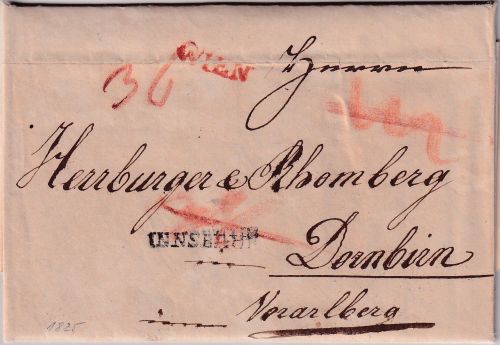 WIEN
36
Herren
Herrburger & Rhomberg
INNSBRUK
Dornbirn
Vorarlberg
1825